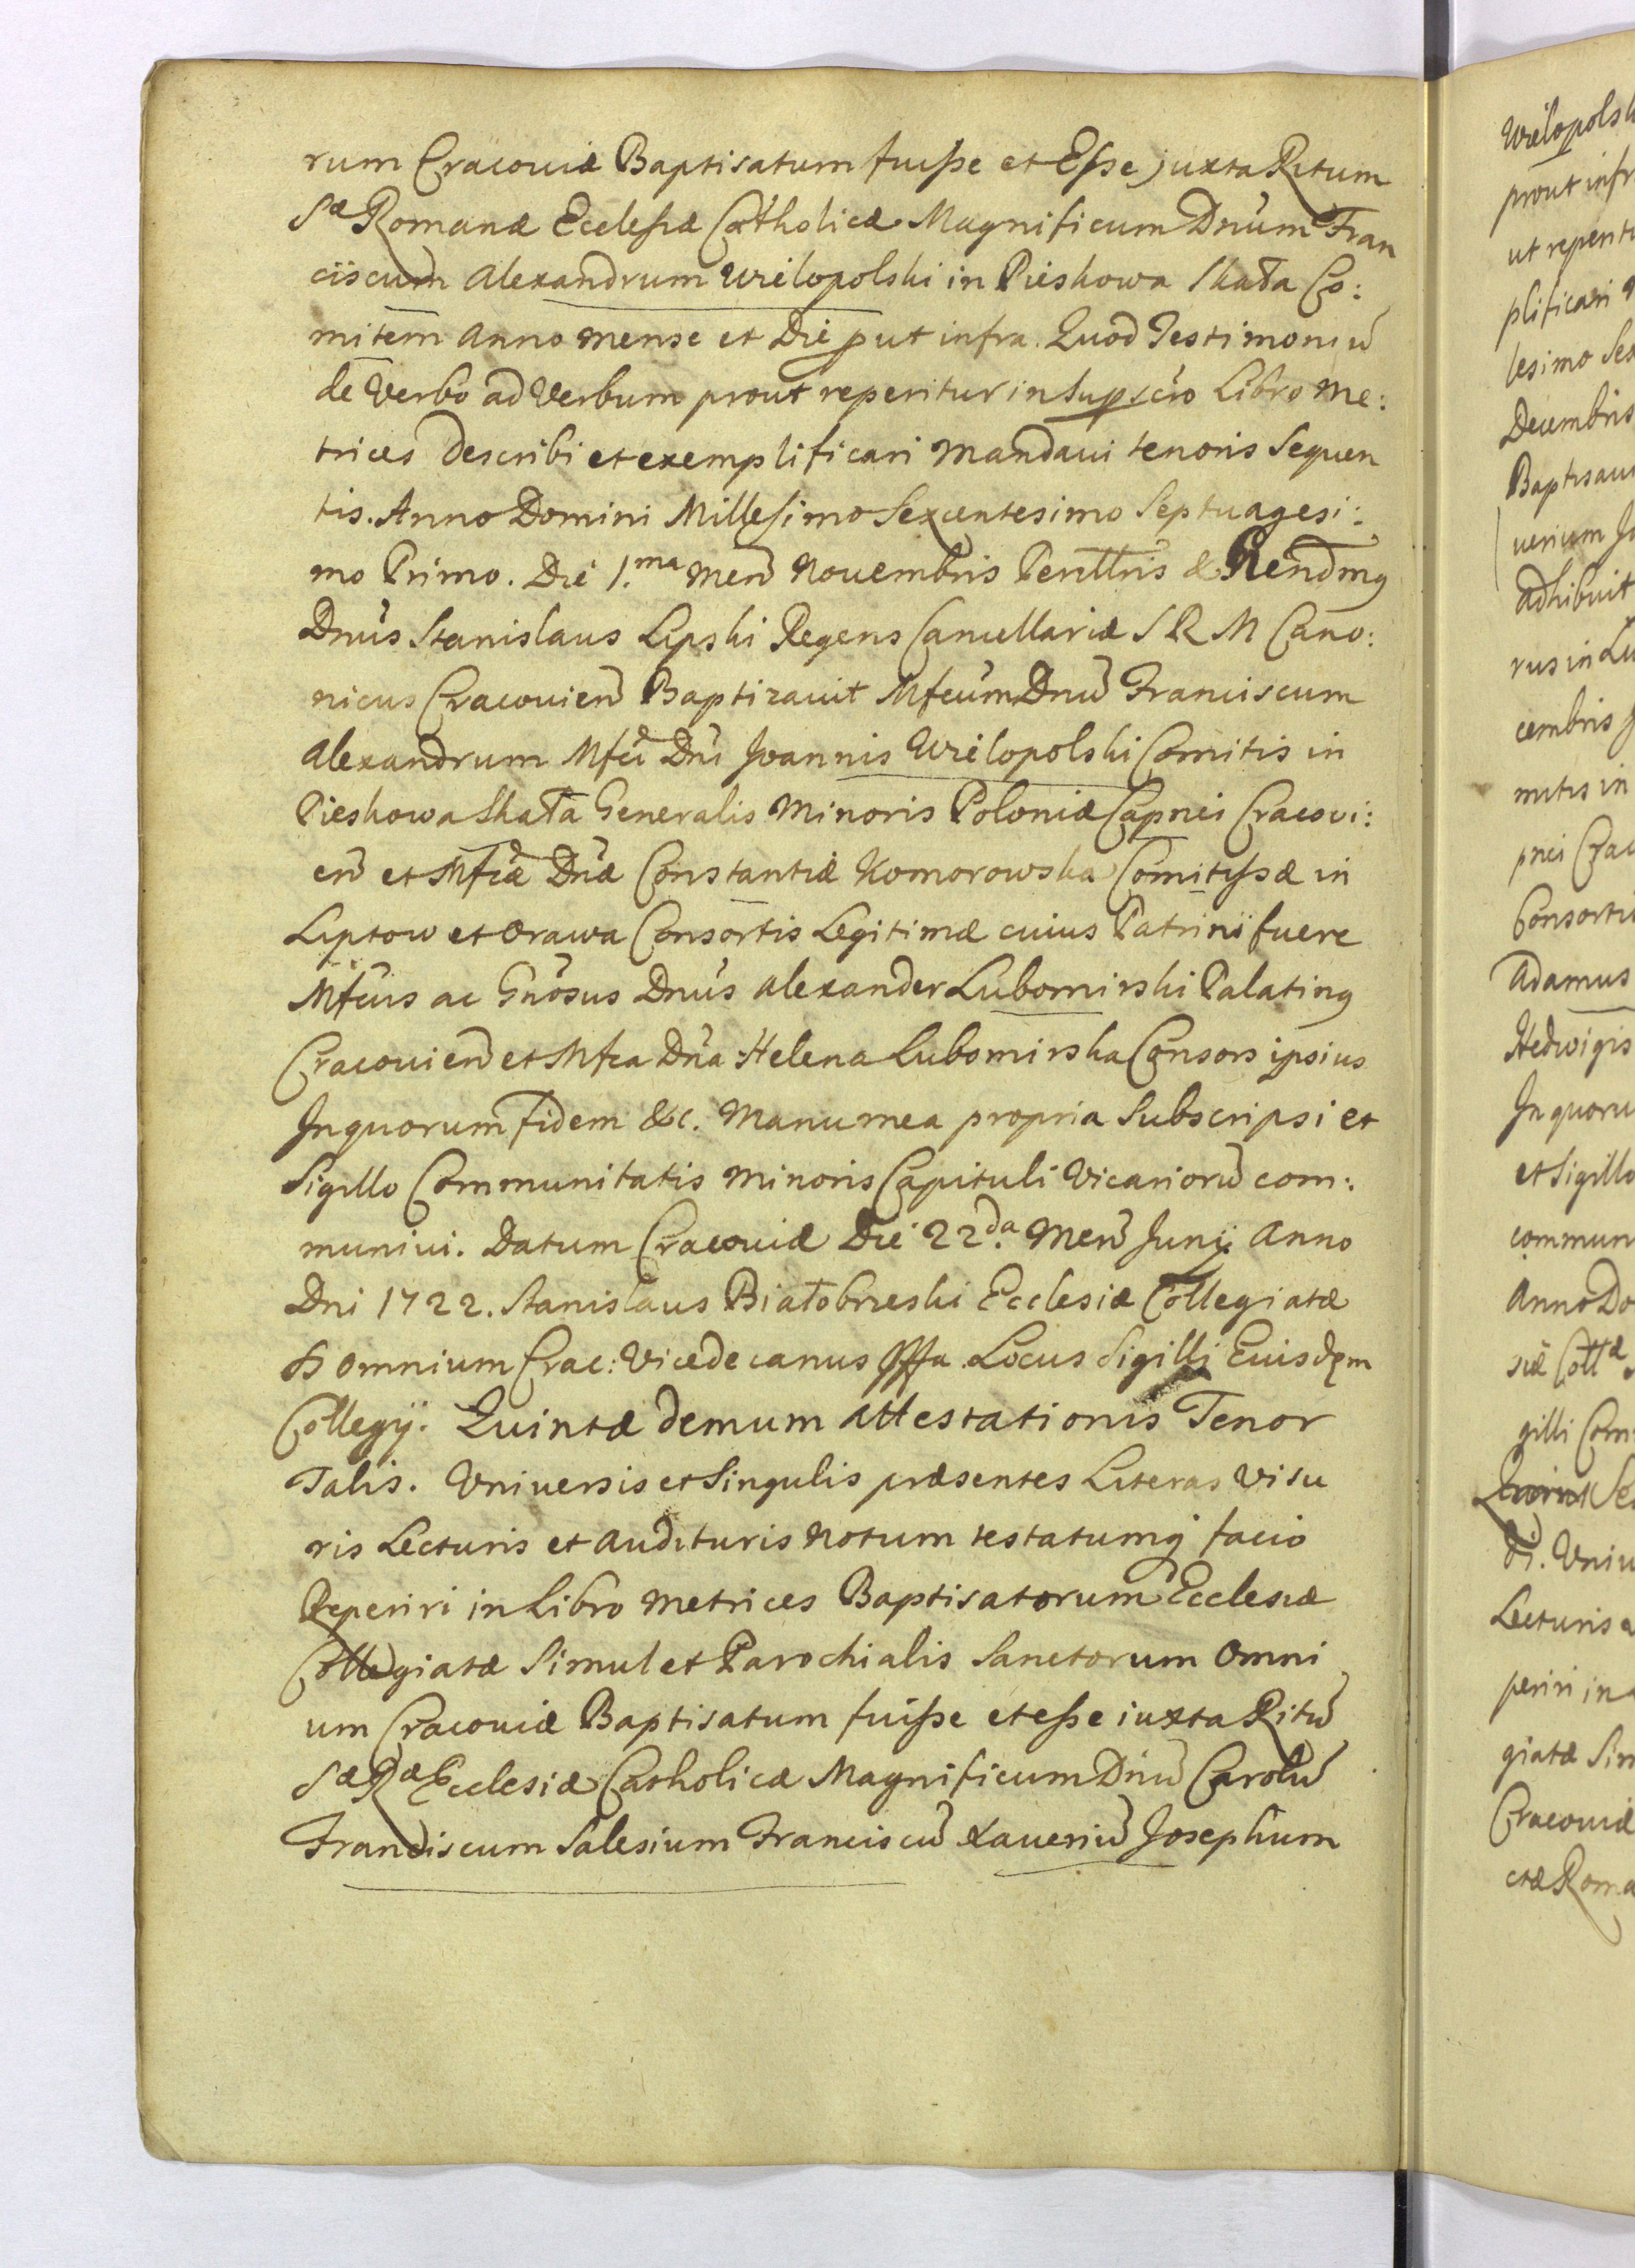 rum Cracoviæ Baptisatum fuisse et Esse juxta Ritum
Sæ Romanæ Ecclesiæ Catholicæ Magnificum Dnum Fran
ciscum Alexandrum Wielopolski in Pieskowa Skała Co:
mitem Anno mense et Die put infra. Quod Testimoniũ
de Verbo ad Verbum prout reperitur in supscto Libro Me:
trices describi et exemplificari Mandavi tenoris Sequen
tis. Anno Domini Millesimo Sexcentesimo Septuagesi:
mo Primo. Die 1.ma Men̄ Novembris Perilltris & Rendmq
Dnus Stanislaus Lipski Regens Cancellariæ S R M Cano:
nicus Cracovien̄ Baptizavit Mfcum Dnũ Franciscum
Alexandrum Mfci Dni Joannis Wielopolski Comitis in
Pieskowa Skała Generalis Minoris Poloniæ Capnei Cracovi:
en̄ et Mfcæ Dnæ Constantiæ Komorowska Comitissæ in
Liptow et Orawa Consortis Legitimæ cuius Patrini fuere
Mfcus ac Gnosus Dnus Alexander Lubomirski Palatinq
Cracovien̄ et Mfca Dna Helena Lubomirska Consors ipsius
In quorum fidem &c. Manu mea propria Subscripsi et
Sigillo Communitatis Minoris Capituli Vicariorũ com:
munivi. Datum Cracoviæ Die 22da. Men̄ Junij Anno
Dni 1722. Stanislaus Białobrzeski Ecclesiæ Collegiatæ
SS Omnium Crac: Vicedecanus Locus Sigilli Eiusdem
Collegij. Quintæ demum Attestationis Tenor
Talis. Universis et Singulis præsentes Literas Visu
ris Lecturis et Audituris Notum testatumq facio
Reperiri in Libro Metrices Baptisatorum Ecclesiæ
Collegiatæ Simul et Parochialis Sanctorum Omni
um Cracoviæ Baptisatum fuisse et esse iuxta Ritũ
Sæ Ræ Ecclesiæ Catholicæ Magnificum Dnũ Carolũ
Franciscum Salesium Franciscũ Xaveriũ Josephum
Wielopolsk
prout infr
ut reperit
plificari
lesimo Sex
Decembris
Baptisavi
verium Jo
adhibuit
rus in Lu
cembris
mitis in
pnei Crac
Consortis
Adamus
Hedwigis
In quoru
et Sigillo
commun
Anno Do
siæ Colltæ
gilli Com
Univ
Lecturis a
periri in
giatæ Sim
Cracoviæ
ctæ Roma